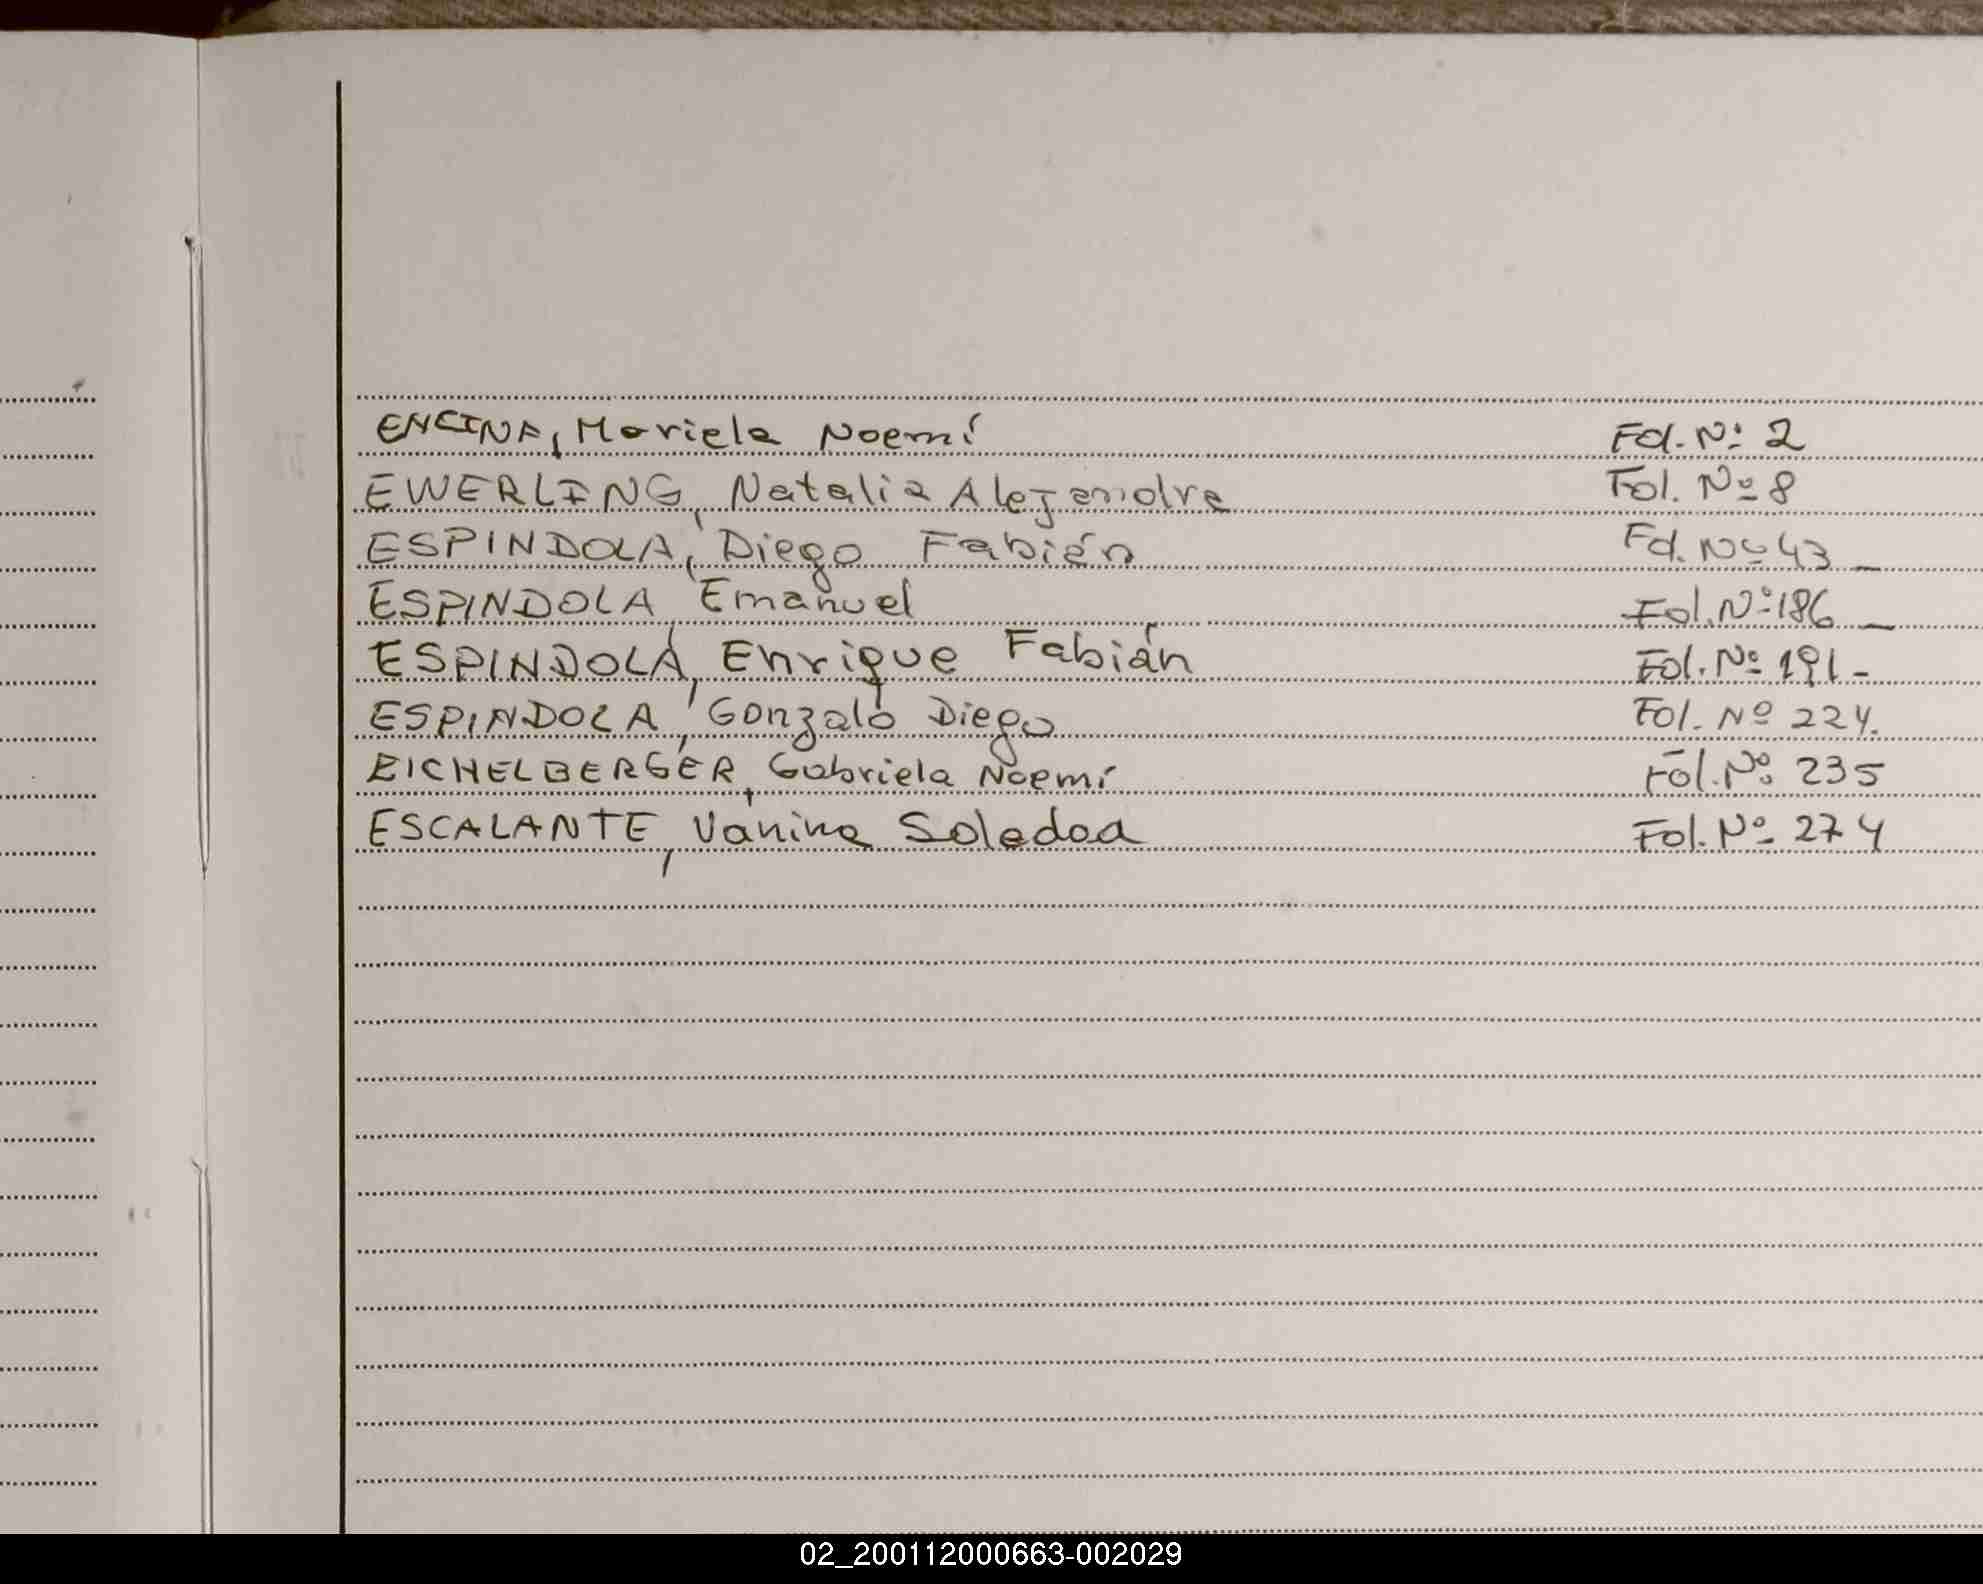 ENCINA, Mariela Noemí Fol. Nº 2
EWERLING, Natalia Alejandra Fol. Nº 8
ESPINDOLA, Diego Fabián Fol. Nº 43 _
ESPINDOLA, Emanuel Fol. Nº 186 _
ESPINDOLA, Enrique Fabián Fol. Nº 191 -
ESPINDOLA, Gonzalo Diego Fol. Nº 224.
EICHELBERGER, Gabriela Noemí Fol. Nº 235
ESCALANTE, Vanina Soledad Fol. Nº 274
02_200112000663-002029